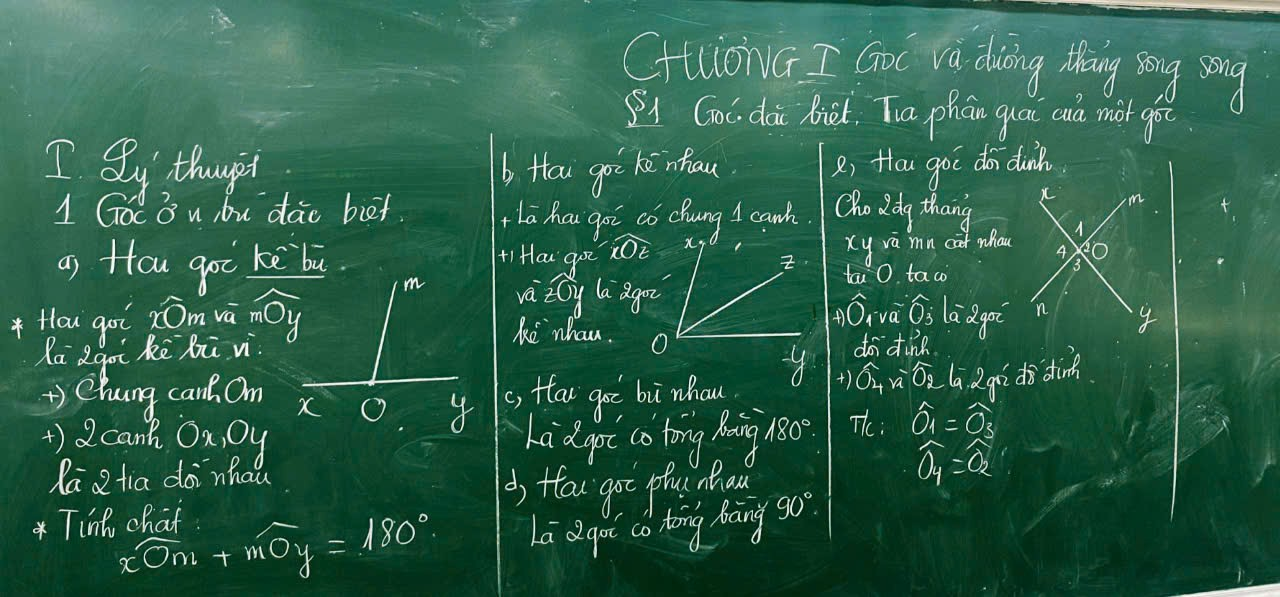 CHƯƠNG I Góc và đường thẳng song song
§1 Góc đặc biệt. Tia phân giác của một góc
I. Lý thuyết
1 Góc ở vị trí đặc biệt.
a) Hai góc kề bù
m
x O y
* Hai góc xÔm và mÔy
là 2 góc kề bù vì:
+) Chung cạnh Om
+) 2 cạnh Ox, Oy
là 2 tia đối nhau
* Tính chất:
xÔm + mÔy = 180°
b) Hai góc kề nhau
+ Là hai góc có chung 1 cạnh.
+) Hai góc xÔz
và zÔy là 2 góc
kề nhau.
x
z
O
y
c) Hai góc bù nhau
Là 2 góc có tổng bằng 180°.
d) Hai góc phụ nhau
Là 2 góc có tổng bằng 90°.
e) Hai góc đối đỉnh.
Cho 2 đg thẳng
xy và mn cắt nhau
tại O. ta có
+) Ô1 và Ô3 là 2 góc
đối đỉnh.
+) Ô4 và Ô2 là 2 góc đối đỉnh.
T/c: Ô1 = Ô3
Ô4 = Ô2
x m
1
4 2 O
3
n y
+